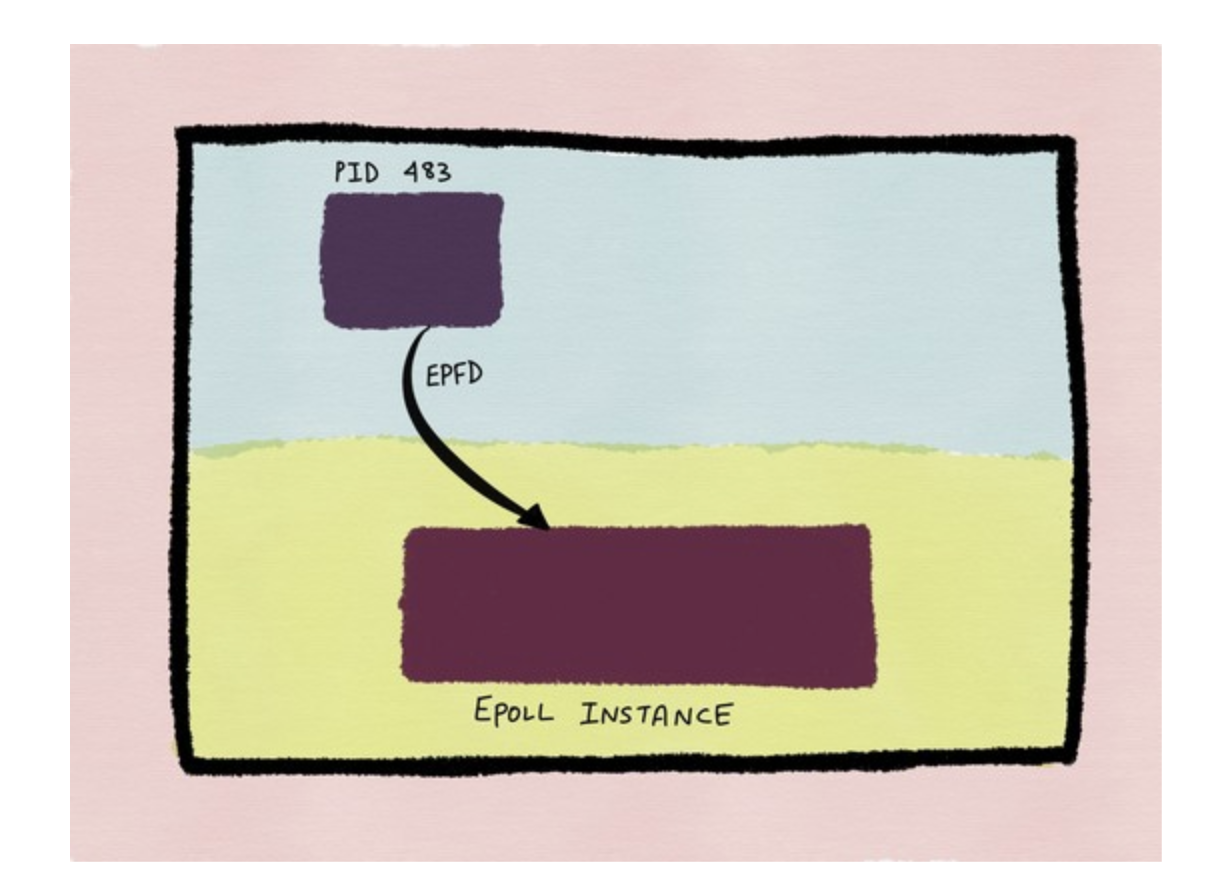 PID 483
EPFD
EPOLL INSTANCE